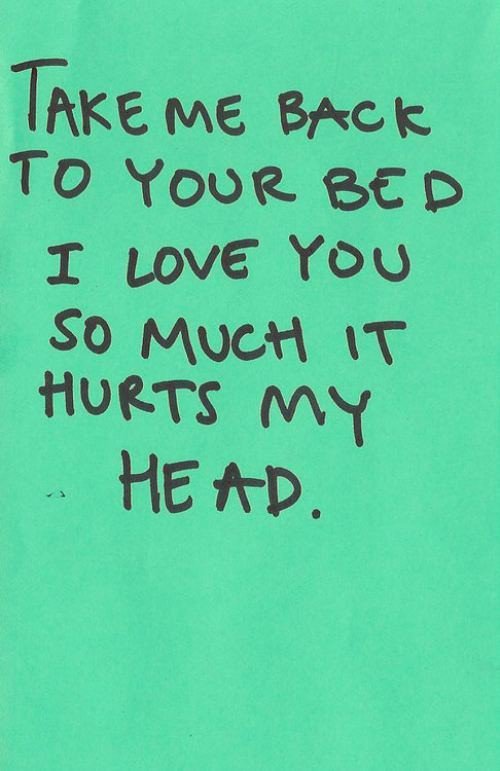 TAKE ME BACK
TO YOUR BED
I LOVE YOU
SO MUCH IT
HURTS MY
HEAD.